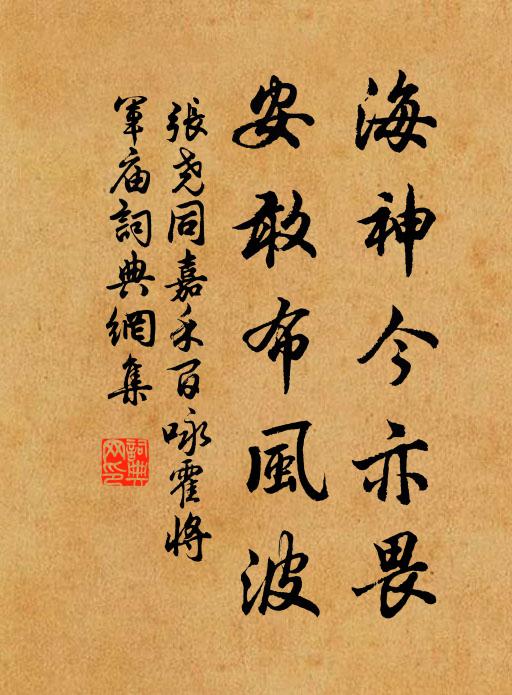 海神今亦畏
安敢布風波
張尧同嘉禾百咏霍將
軍庙詞典網集
詞典
网印